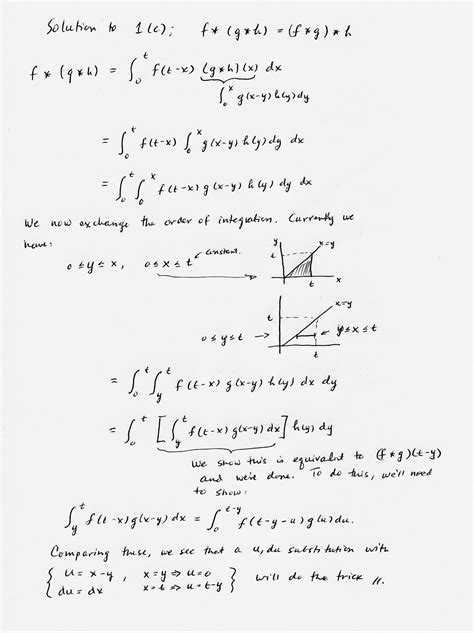 Solution to 1(c); f * (g*h) = (f*g) * h
f * (g*h) = ∫₀ᵗ f(t-x) (g*h)(x) dx
∫₀ˣ g(x-y) h(y) dy
= ∫₀ᵗ f(t-x) ∫₀ˣ g(x-y) h(y) dy dx
= ∫₀ᵗ ∫₀ˣ f(t-x) g(x-y) h(y) dy dx
We now exchange the order of integration. Currently we
have:
0 ≤ y ≤ x, 0 ≤ x ≤ t constant.
y x=y
t
t x
x=y
t
0 ≤ y ≤ t → ← y ≤ x ≤ t
t
= ∫₀ᵗ ∫ᵧᵗ f(t-x) g(x-y) h(y) dx dy
= ∫₀ᵗ [∫ᵧᵗ f(t-x) g(x-y) dx] h(y) dy
We show this is equivalent to (f*g)(t-y)
and we're done. To do this, we'll need
to show:
∫ᵧᵗ f(t-x) g(x-y) dx = ∫₀ᵗ⁻ʸ f(t-y-u) g(u) du.
Comparing these, we see that a u, du substitution with
{ u = x-y, x=y ⇒ u=0
du = dx x=t ⇒ u=t-y } will do the trick //.